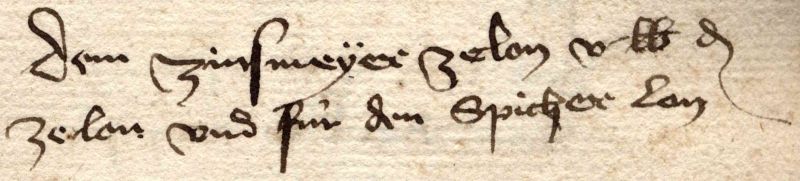 dem zinsmeyer zelon v lb d
zelon vnd für den Spicher lon